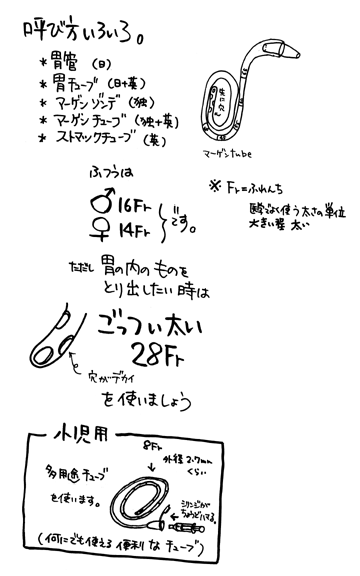 呼び方いろいろ。
*胃管 (日)
*胃チューブ (日+英)
*マーゲンゾンデ (独)
*マーゲンチューブ (独+英)
*ストマックチューブ (英)
マーゲンtube
※ Fr=ふれんち
医学でよく使う太さの単位
大きい程 太い
ふつうは
♂16Fr
♀14Fr
です。
ただし 胃の内のものを
とり出したい時は
ごっつい太い
28Fr
穴がデカイ
を使いましょう
小児用
8Fr
外径2.7mm
くらい
多用途チューブ
を使います。
シリンジが
ちょうどハマる。
(何にでも使える便利なチューブ)